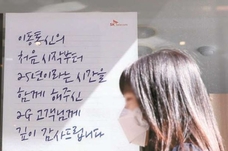 SK
이동통신의
처음 시작부터
25년이라는 시간을
함께 해주신
2G 고객님께
깊이 감사드립니다